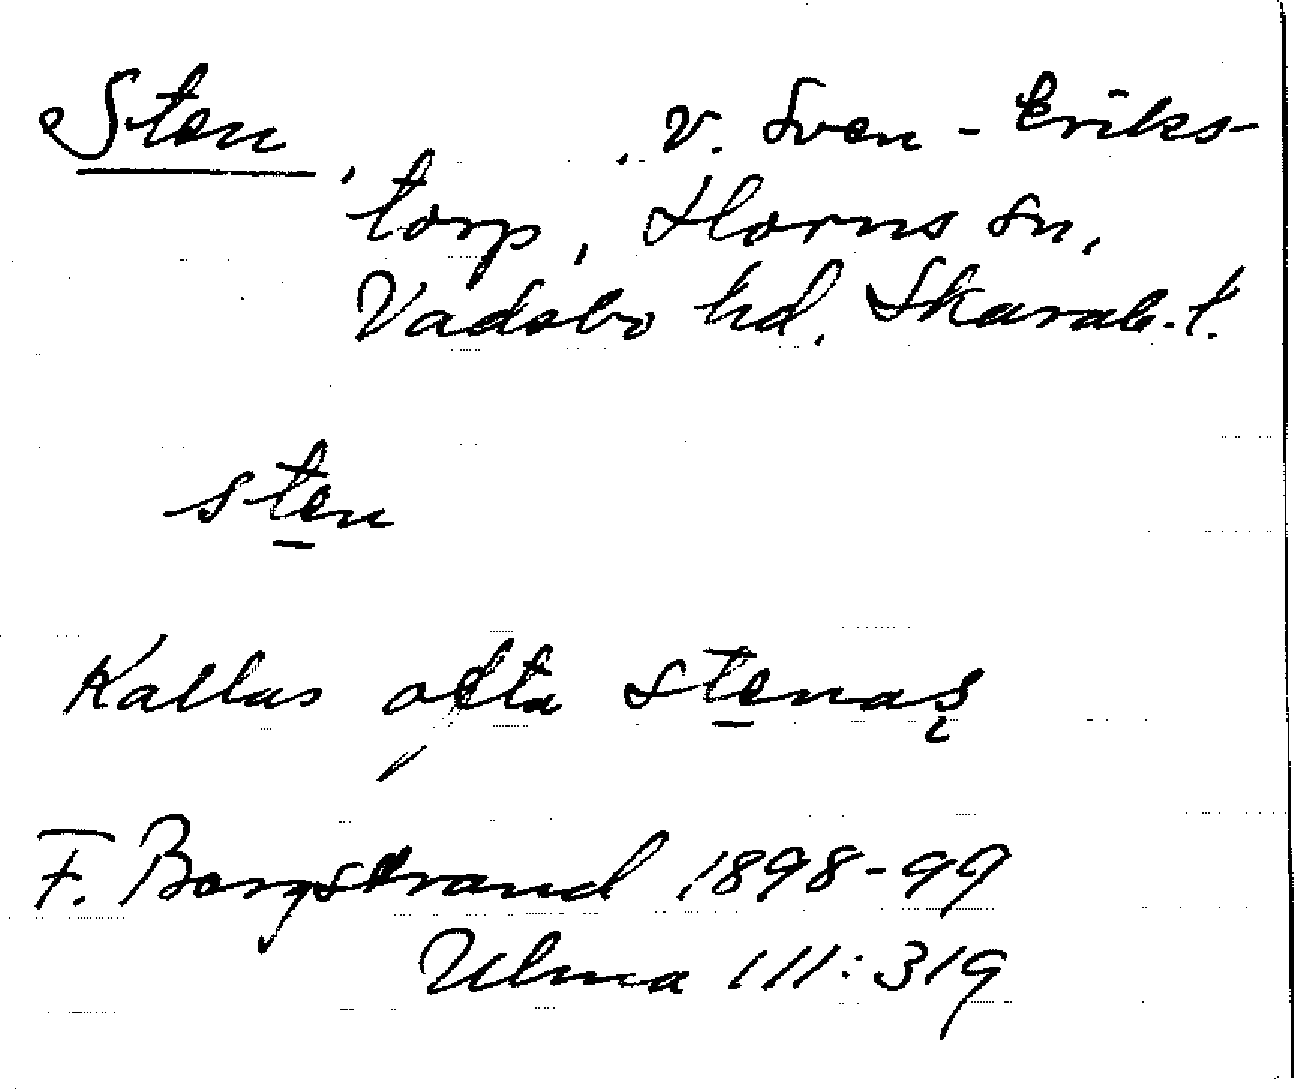 Sten, v. Sven-Eriks-
torp, Horns sn,
Vadsbo hd. Skarab. l.
sten
Kallas ofta stenas
F. Bergstrand 1898-99
Ulma 111:319